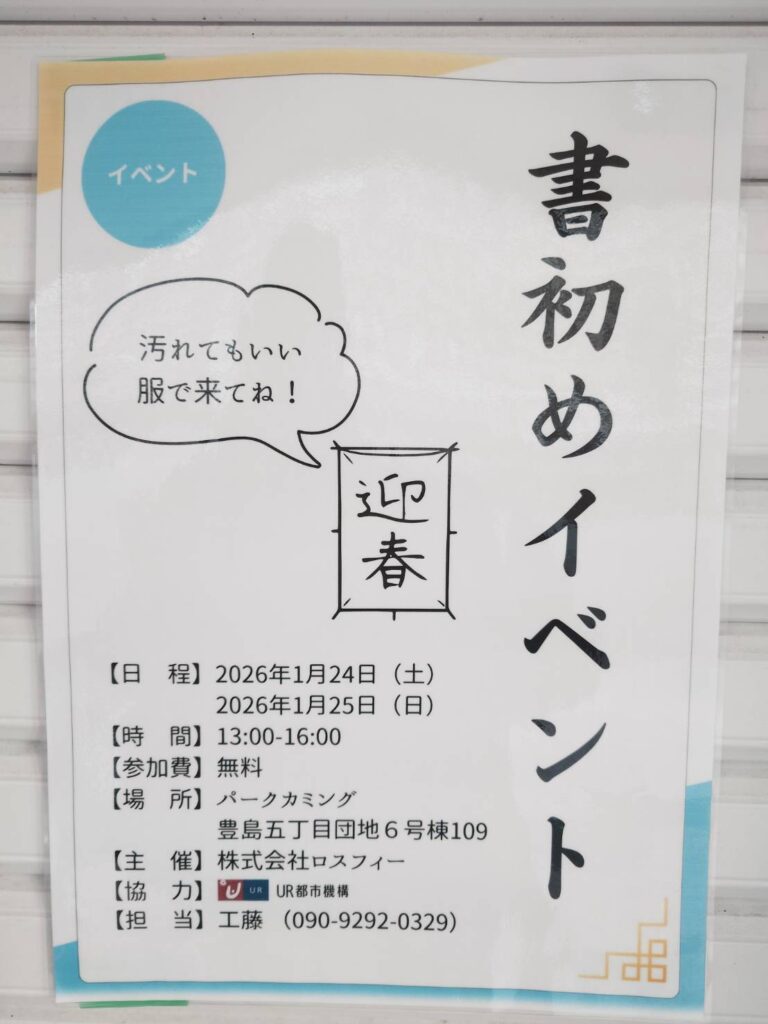 イベント
書初めイベント
汚れてもいい
服で来てね！
迎
春
【日　程】2026年1月24日（土）
2026年1月25日（日）
【時　間】13:00-16:00
【参加費】無料
【場　所】パークカミング
豊島五丁目団地６号棟109
【主　催】株式会社ロスフィー
【協　力】UR UR都市機構
【担　当】工藤 （090-9292-0329）